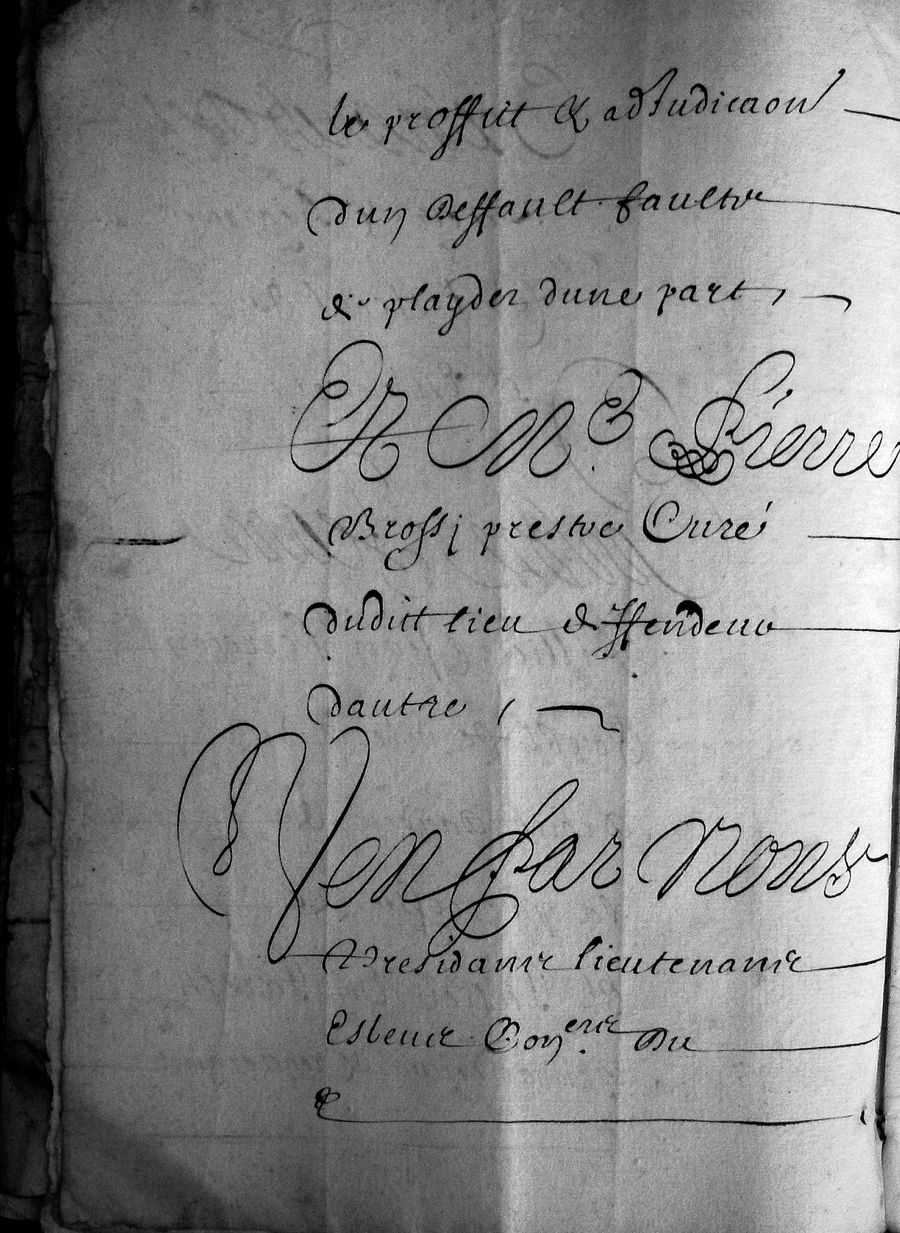 le proffict & adJudicaon
dun deffault faulte
de playder dune part,
Et Me Pierre
Brossj prestre Curé
dudict lieu deffendeur
dautre,
Veu par Nous
Presidantz lieutenantz
Esleuz Conerz du